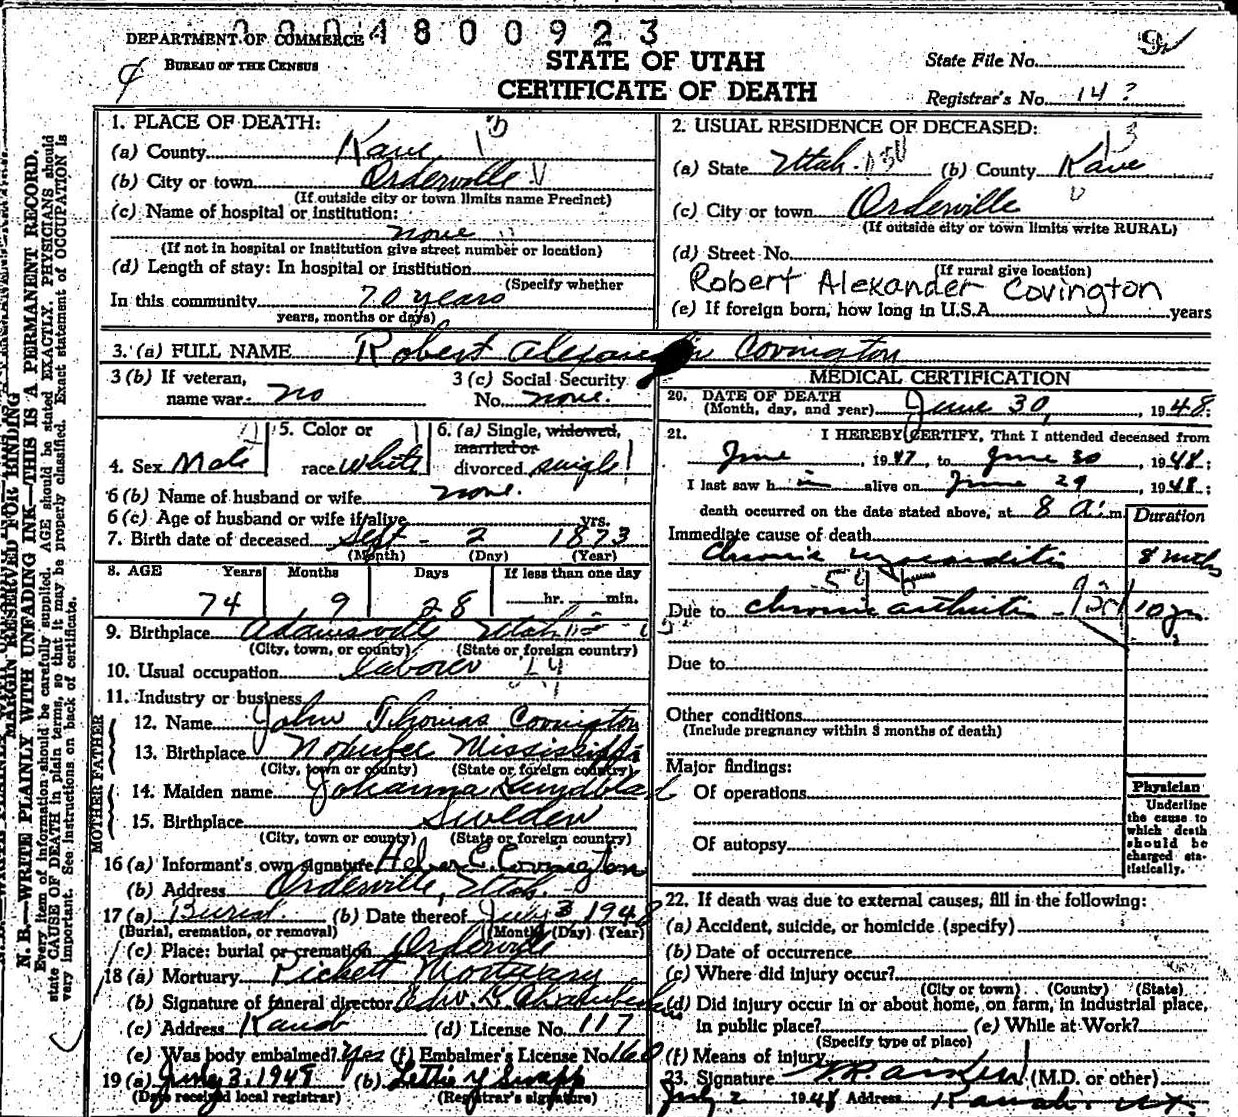 0004800923
DEPARTMENT OF COMMERCE
BUREAU OF THE CENSUS
STATE OF UTAH
CERTIFICATE OF DEATH
State File No.
9
Registrar's No. 14?
MARGIN RESERVED FOR BINDING
N. B.—WRITE PLAINLY WITH UNFADING INK—THIS IS A PERMANENT RECORD.
Every item of information should be carefully supplied. AGE should be stated EXACTLY. PHYSICIANS should
state CAUSE OF DEATH in plain terms, so that it may be properly classified. Exact statement of OCCUPATION is
very important. See instructions on back of certificate.
1. PLACE OF DEATH:
(a) County Kane
(b) City or town Orderville
(If outside city or town limits name Precinct)
(c) Name of hospital or institution:
none
(If not in hospital or institution give street number or location)
(d) Length of stay: In hospital or institution
(Specify whether
In this community 70 years
years, months or days)
2. USUAL RESIDENCE OF DECEASED:
(a) State Utah (b) County Kane
(c) City or town Orderville
(If outside city or town limits write RURAL)
(d) Street No.
(If rural give location)
Robert Alexander Covington
(e) If foreign born, how long in U.S.A. years
3. (a) FULL NAME Robert Alexander Covington
3 (b) If veteran, name war no
3 (c) Social Security No. none.
4. Sex Male
5. Color or race white
6. (a) Single, widowed, married or divorced single
6 (b) Name of husband or wife none.
6 (c) Age of husband or wife if alive yrs.
7. Birth date of deceased Sept - 2 1873
(Month) (Day) (Year)
8. AGE Years Months Days If less than one day
74 9 28 hr. min.
9. Birthplace Adamsville Utah
(City, town, or county) (State or foreign country)
10. Usual occupation laborer
11. Industry or business
FATHER
12. Name John Thomas Covington
13. Birthplace Noxubee Mississippi
(City, town or county) (State or foreign country)
MOTHER
14. Maiden name Johanna Lundblad
15. Birthplace Sweden
(City, town or county) (State or foreign country)
16 (a) Informant's own signature Heber C. Covington
(b) Address Orderville, Utah.
17 (a) Burial (b) Date thereof July 3, 1948
(Burial, cremation, or removal) (Month) (Day) (Year)
(c) Place: burial or cremation Orderville
18 (a) Mortuary Mortuary
(b) Signature of funeral director
(c) Address Kanab (d) License No. 117
(e) Was body embalmed? Yes (f) Embalmer's License No. 160
19 (a) July 3, 1948 (b) Lettie Y Swapp
(Date received local registrar) (Registrar's signature)
MEDICAL CERTIFICATION
20. DATE OF DEATH
(Month, day, and year) June 30, , 1948.
21. I HEREBY CERTIFY, That I attended deceased from
June , 1947, to June 30 , 1948;
I last saw him alive on June 29 , 1948;
death occurred on the date stated above, at 8 a.m.
Duration
Immediate cause of death
Chronic myocarditis 8 mths
Due to chronic arthritis 10 yrs
Due to
Other conditions
(Include pregnancy within 3 months of death)
Major findings:
Of operations
Of autopsy
Physician
Underline
the cause to
which death
should be
charged sta-
tistically.
22. If death was due to external causes, fill in the following:
(a) Accident, suicide, or homicide (specify)
(b) Date of occurrence
(c) Where did injury occur?
(City or town) (County) (State)
(d) Did injury occur in or about home, on farm, in industrial place,
in public place? (e) While at Work?
(Specify type of place)
(f) Means of injury
23. Signature (M.D. or other)
July 2 1948 Address Kanab, Ut